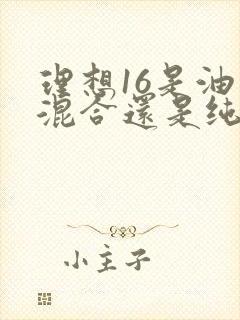 理想16是油
混合還是纯
小主子